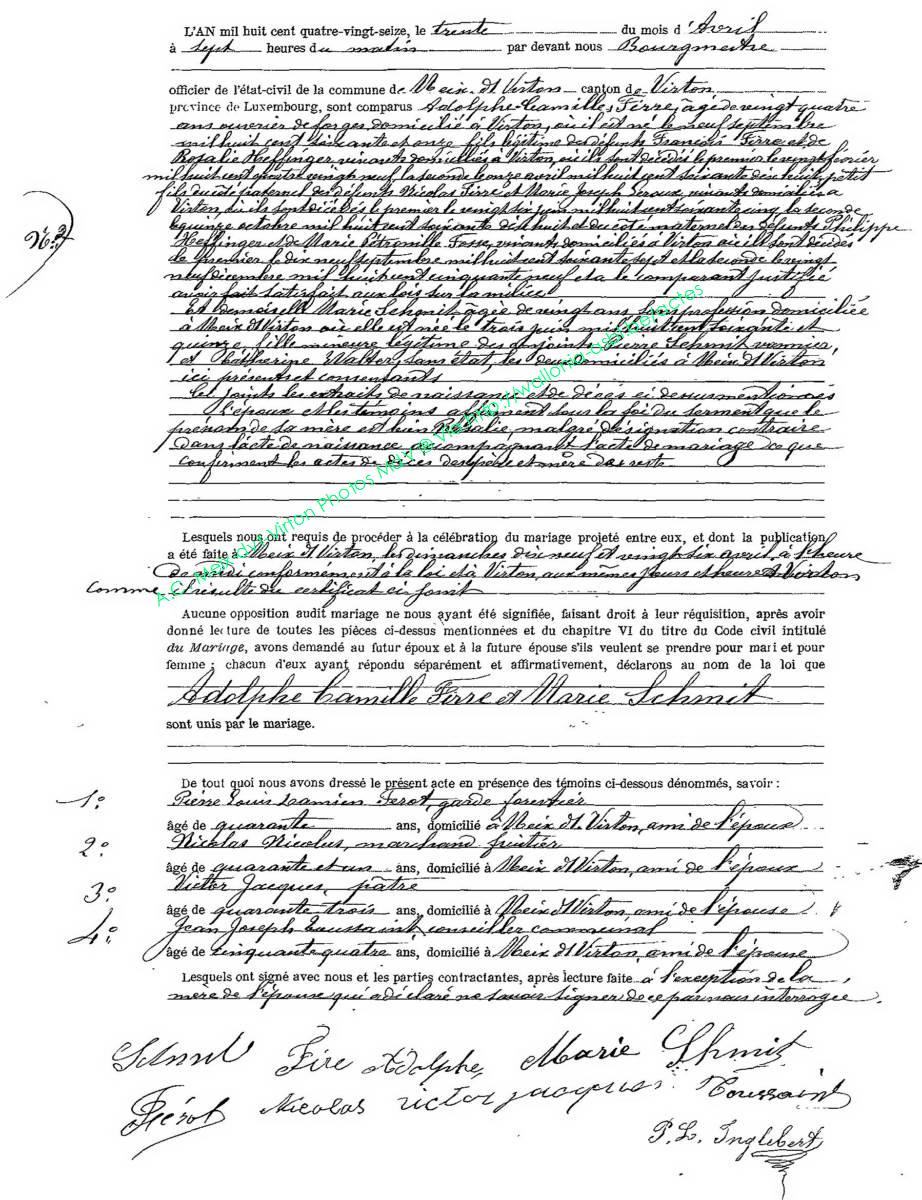 L'AN mil huit cent quatre-vingt-seize, le trente du mois d'Avril
à sept heures du matin par devant nous Bourgmestre
officier de l'état-civil de la commune de Meix-dt Virton canton de Virton
province de Luxembourg, sont comparus Adolphe-Camille Firre, âgé de vingt quatre
ans ouvrier de forges domicilié à Virton, où il est né le neuf septembre
mil huit cent soixante et onze fils légitime des défunts François Firre et de
Rosalie Heffinger vivants domiciliés à Virton, où ils sont décédés le premier le vingt février
mil huit cent quatre vingt neuf la seconde le onze avril mil huit cent soixante dix huit, petit
fils du côté paternel des défunts Nicolas Firre et Marie Joseph Leroux vivants domiciliés à
Virton, où ils sont décédés le premier le vingt six juin mil huit cent soixante cinq la seconde
le quinze octobre mil huit cent soixante dix huit et du côté maternel des défunts Philippe
Heffinger et de Marie Pétronille Fosse, vivants domiciliés à Virton où ils sont décédés
le premier le dix neuf septembre mil huit cent soixante sept et la seconde le vingt
neuf décembre mil huit cent cinquante neuf et a le comparant justifié
avoir fait satisfait aux lois sur la milice
Et demoiselle Marie Schmit âgée de vingt ans sans profession domiciliée
à Meix dt Virton où elle est née le trois juin mil huit cent soixante et
quinze, fille mineure légitime des conjoints Pierre Schmit vannier,
et Catherine Walter, sans état, les deux domiciliés à Meix dt Virton,
ici présents et consentants
Ci joints les extraits de naissance et de décès ci dessus mentionnés
L'époux et les témoins affirment sous la foi du serment que le
prénom de sa mère est bien Rosalie, malgré désignation contraire
dans l'acte de naissance accompagnant l'acte de mariage ce que
confirment les actes de décès des père et mère du reste
N° 3
Lesquels nous ont requis de procéder à la célébration du mariage projeté entre eux, et dont la publication
a été faite à Meix dt Virton, les dimanches dix neuf et vingt six avril, à l'heure
de midi conformément à la loi et à Virton, aux mêmes jours et heure à Virton
comme il résulte du certificat ci joint
Aucune opposition audit mariage ne nous ayant été signifiée, faisant droit à leur réquisition, après avoir
donné lecture de toutes les pièces ci-dessus mentionnées et du chapitre VI du titre du Code civil intitulé
du Mariage, avons demandé au futur époux et à la future épouse s'ils veulent se prendre pour mari et pour
femme ; chacun d'eux ayant répondu séparément et affirmativement, déclarons au nom de la loi que
Adolphe Camille Firre et Marie Schmit
sont unis par le mariage.
De tout quoi nous avons dressé le présent acte en présence des témoins ci-dessous dénommés, savoir :
1° Pierre Louis Damien Ferot, garde forestier
âgé de quarante ans, domicilié à Meix dt. Virton, ami de l'époux
2° Nicolas Nicolus, marchand fruitier
âgé de quarante et un ans, domicilié à Meix dt Virton, ami de l'époux
3° Victor Jacques, pâtre
âgé de quarante trois ans, domicilié à Meix dt Virton, ami de l'épouse
4° Jean Joseph Toussaint, conseiller communal
âgé de cinquante quatre ans, domicilié à Meix dt Virton, ami de l'épouse
Lesquels ont signé avec nous et les parties contractantes, après lecture faite à l'exception de la
mère de l'épouse qui a déclaré ne savoir signer de ce par nous interrogée.
Fire Adolphe Marie Shmit
Férot Nicolas victor jacques Toussaint
P. L. Inglebert